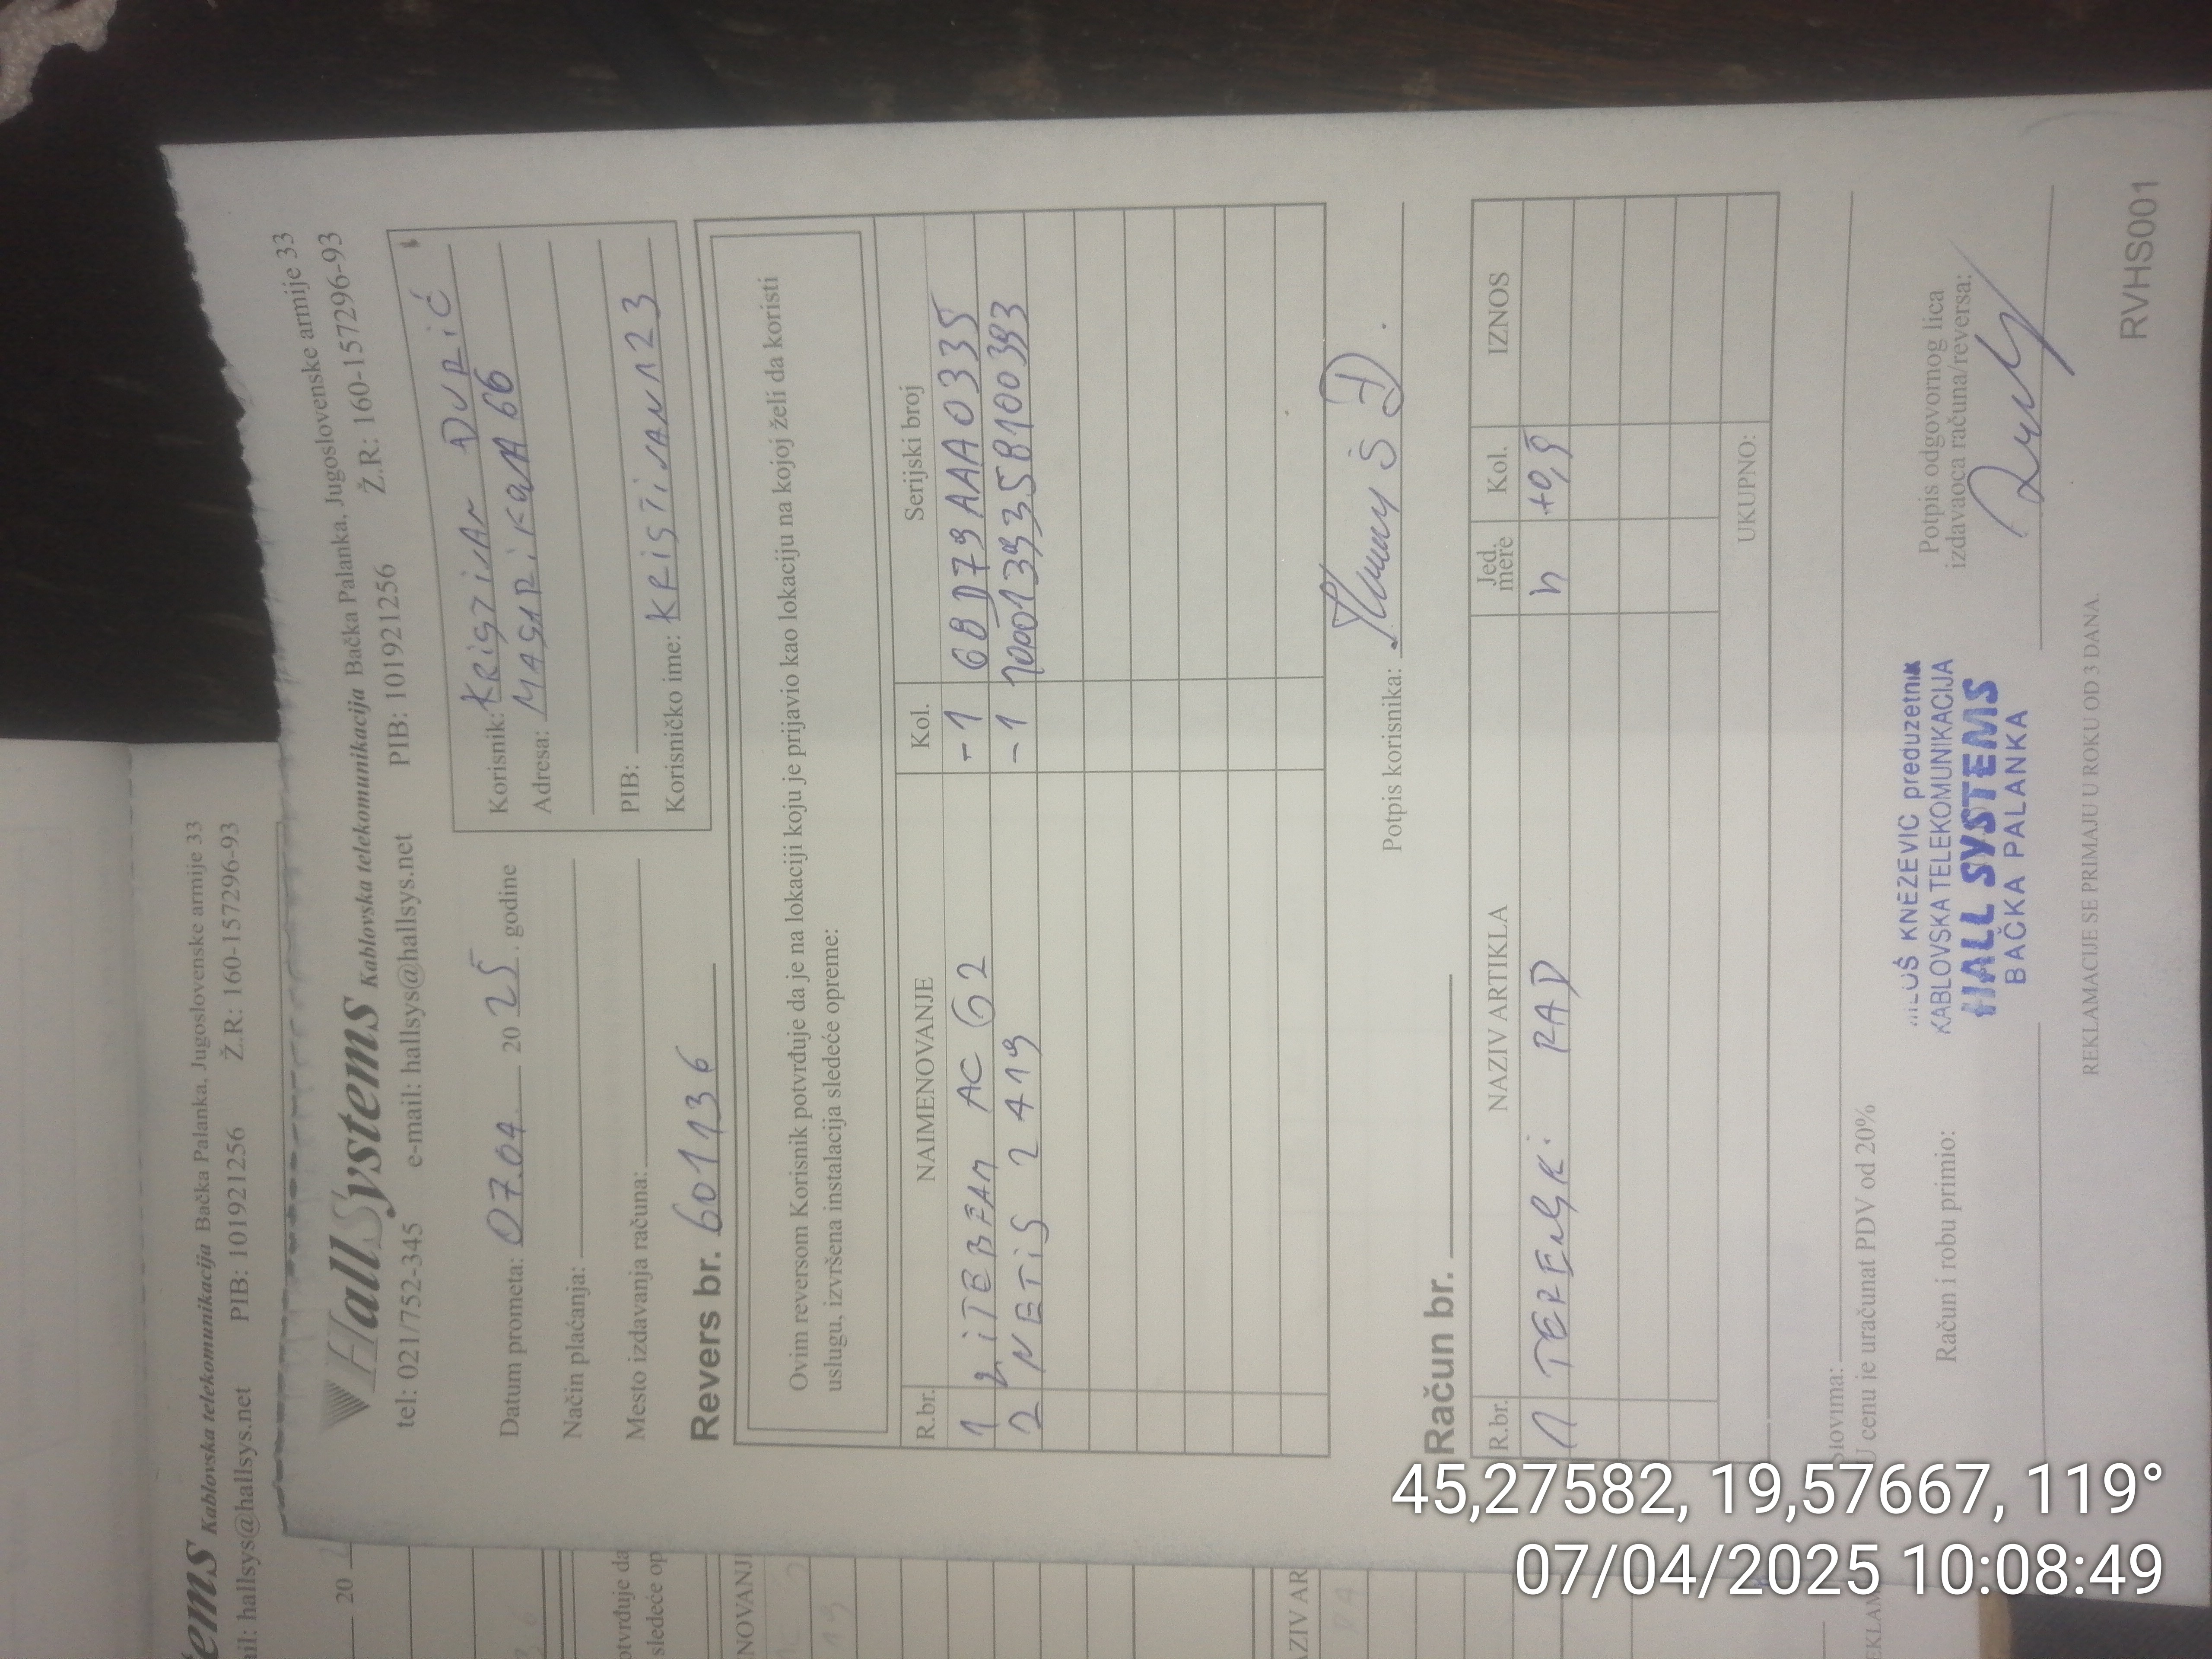 HallSystems Kablovska telekomunikacija Bačka Palanka, Jugoslovenske armije 33
tel: 021/752-345 e-mail: hallsys@hallsys.net PIB: 101921256 Ž.R: 160-157296-93
Datum prometa: 07.04. 20 25. godine
Način plaćanja:
Mesto izdavanja računa:
Korisnik: KRISTIJAN ĐURIĆ
Adresa: 66
PIB:
Korisničko ime: KRISTIJAN123
Revers br. 601136
Ovim reversom Korisnik potvrđuje da je na lokaciji koju je prijavio kao lokaciju na kojoj želi da koristi
uslugu, izvršena instalacija sledeće opreme:
R.br. NAIMENOVANJE Kol. Serijski broj
1 LITEBEAM AC G2 -1 68D79AAA0335
2 NETIS 2419 -1
Potpis korisnika:
Račun br.
R.br. NAZIV ARTIKLA Jed. mere Kol. IZNOS
1 TERENSKI RAD h
UKUPNO:
Slovima:
U cenu je uračunat PDV od 20%
Račun i robu primio:
KNEZEVIC preduzetnik
KABLOVSKA TELEKOMUNIKACIJA
HALL SYSTEMS
BAČKA PALANKA
Potpis odgovornog lica
izdavaoca računa/reversa:
REKLAMACIJE SE PRIMAJU U ROKU OD 3 DANA.
RVHS001
tems Kablovska telekomunikacija Bačka Palanka, Jugoslovenske armije 33
ail: hallsys@hallsys.net PIB: 101921256 Ž.R: 160-157296-93
20
otvrđuje da
sledeće op
NOVANJ
AZIV AR
EKLAM
45,27582, 19,57667, 119°
07/04/2025 10:08:49